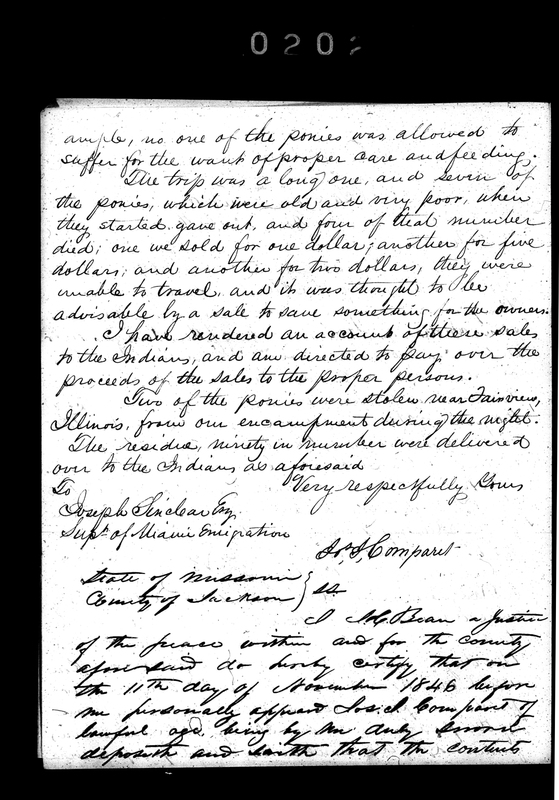 020
ample, no one of the ponies was allowed to
suffer for the want of proper care and feeding.
The trip was a long one, and seven of
the ponies, which were old and very poor, when
they started gave out, and four of that number
died; one we sold for one dollar; another for five
dollars; and another for two dollars, they were
unable to travel, and it was thought to be
advisable by a sale to save something for the owners.
I have rendered an account of these sales
to the Indians, and am directed to pay over the
proceeds of the sales to the proper persons.
Two of the ponies were stolen near Fairview,
Illinois, from our encampment during the night.
The residue, ninety in number were delivered
over to the Indians as aforesaid
Very respectfully Yours
To
Joseph Sinclear Esq
Supt. of Miami Emigration
Jos. J. Comparet
State of Missouri
County of Jackson } ss
I Bean a Justice
of the peace within and for the county
aforesaid do hereby certify that on
the 11th day of November 1846 before
me personally appeard Jos. J. Comparet of
lawful age being by me duly sworn
deposeth and saith that the contents